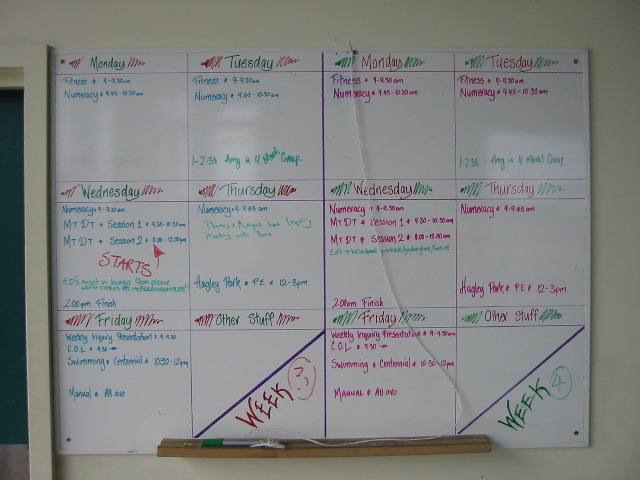 Monday
Fitness * 9-9:30am
Numeracy * 9.45-10.30am
Tuesday
Fitness * 9-9.30am
Numeracy * 9.45-10.30am
1-2:30 Amy in 4 Moral Group.
Monday
Fitness * 9-9.30am
Numeracy * 9.45-10.30am
Tuesday
Fitness * 9-9.30am
Numeracy * 9.45-10.30am
1-2:30 - Amy in 4 Moral Group
Wednesday
Numeracy * 9-9.30am
MT DT * Session 1 * 9.30-10.30am
MT DT * Session 2 * 11.00-12.00pm
STARTS
ED's meet in lounge 9am please
2.00pm Finish
Thursday
Numeracy * 9-9.45am
Inquiry
Meeting with Anne
Hagley Park * P.E * 12-3pm
Wednesday
Numeracy * 9-9.30am
MT DT * Session 1 * 9.30-10.30am
MT DT * Session 2 * 11.00-12.00pm
2.00pm Finish
Thursday
Numeracy * 9-9.45am
Hagley Park * P.E * 12-3pm
Friday
Weekly Inquiry Presentation * 9-9.30
C.O.L * 9.30
Swimming * Centennial * 10:30-12pm
Manual * All avo
Other Stuff
WEEK 3
Friday
Weekly Inquiry Presentation * 9-9.30am
C.O.L * 9.30
Swimming * Centennial * 10-30-12pm
Manual * All avo
Other Stuff
WEEK 4